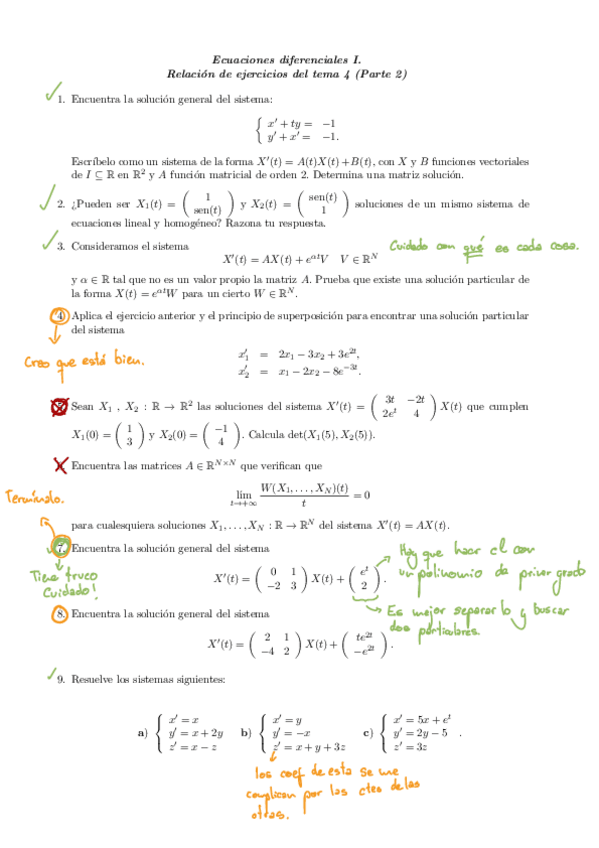 Ecuaciones diferenciales I.
Relación de ejercicios del tema 4 (Parte 2)
1. Encuentra la solución general del sistema:
{ x′ + ty = −1
y′ + x′ = −1.
Escríbelo como un sistema de la forma X′(t) = A(t)X(t) + B(t), con X y B funciones vectoriales
de I ⊆ ℝ en ℝ² y A función matricial de orden 2. Determina una matriz solución.
2. ¿Pueden ser X₁(t) = ( 1 sen(t) ) y X₂(t) = ( sen(t) 1 ) soluciones de un mismo sistema de
ecuaciones lineal y homogéneo? Razona tu respuesta.
3. Consideramos el sistema
Cuidado con qué es cada cosa.
X′(t) = AX(t) + e^{αt}V V ∈ ℝᴺ
y α ∈ ℝ tal que no es un valor propio la matriz A. Prueba que existe una solución particular de
la forma X(t) = e^{αt}W para un cierto W ∈ ℝᴺ.
4. Aplica el ejercicio anterior y el principio de superposición para encontrar una solución particular
del sistema
Creo que está bien.
x′₁ = 2x₁ − 3x₂ + 3e^{2t},
x′₂ = x₁ − 2x₂ − 8e^{−3t}.
Sean X₁ , X₂ : ℝ → ℝ² las soluciones del sistema X′(t) = ( 3t −2t 2eᵗ 4 ) X(t) que cumplen
X₁(0) = ( 1 3 ) y X₂(0) = ( −1 4 ). Calcula det(X₁(5), X₂(5)).
Encuentra las matrices A ∈ ℝ^{N×N} que verifican que
Termínalo.
lim_{t→+∞} W(X₁, . . . , X_N)(t) / t = 0
para cualesquiera soluciones X₁, . . . , X_N : ℝ → ℝᴺ del sistema X′(t) = AX(t).
7. Encuentra la solución general del sistema
Hay que hacer el con
un polinomio de primer grado
Tiene truco
Cuidado!
X′(t) = ( 0 1 −2 3 ) X(t) + ( eᵗ 2 ).
Es mejor separarlo y buscar
dos particulares.
8. Encuentra la solución general del sistema
X′(t) = ( 2 1 −4 2 ) X(t) + ( te^{2t} −e^{2t} ).
9. Resuelve los sistemas siguientes:
a) { x′ = x y′ = x + 2y z′ = x − z b) { x′ = y y′ = −x z′ = x + y + 3z c) { x′ = 5x + eᵗ y′ = 2y − 5 z′ = 3z .
los coef de esta se me
complican por las ctes de las
otras.